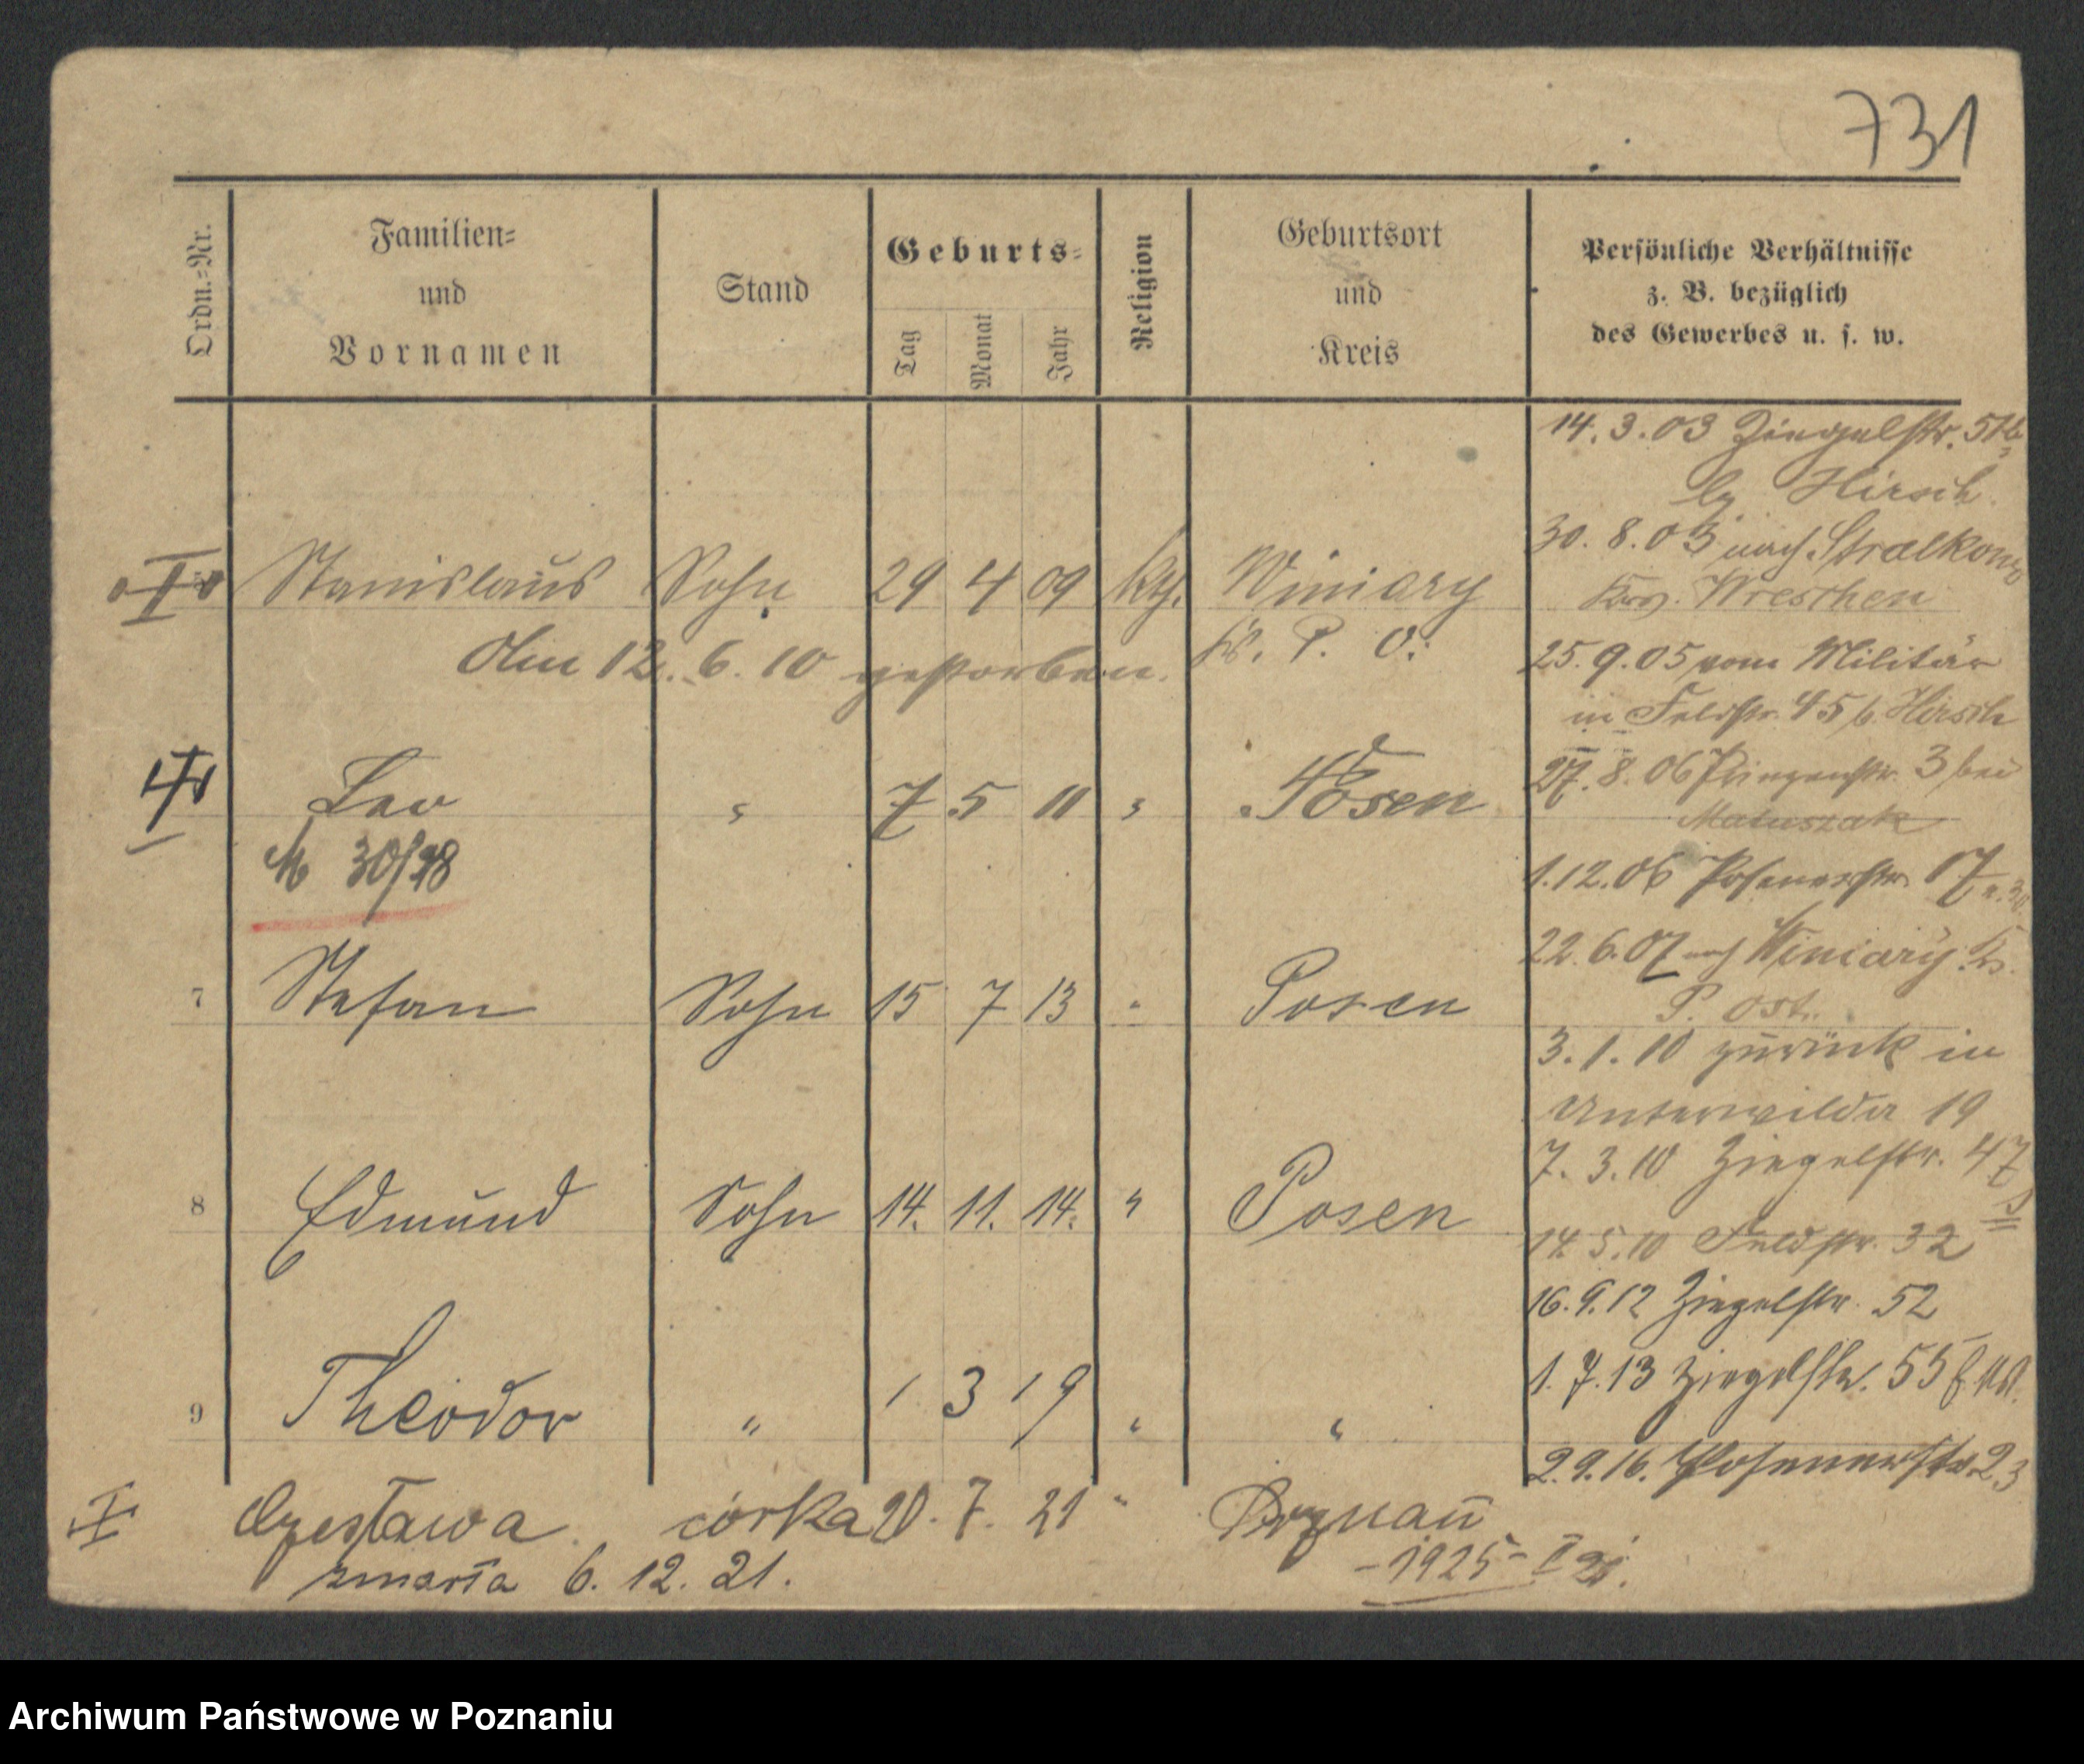 731
Ordn.=Nr.
Familien=
und
Vornamen
Stand
Geburts=
Tag
Monat
Jahr
Religion
Geburtsort
und
Kreis
Persönliche Verhältnisse
z. B. bezüglich
des Gewerbes u. s. w.
Stanislaus Sohn 29 4 09 kth. Winiary
Am 12. 6. 10 gestorben. Kr. P. O.
Leo " 7 5 11 " Posen
M 30/28
7 Stefan Sohn 15 7 13 " Posen
8 Edmund Sohn 14. 11. 14. " Posen
9 Theodor " 1 3 19 " "
Czesława córka 20. 7. 21 " Poznań
zmarła 6. 12. 21.
- 1925 -
14. 3. 03 Ziegelstr.
Hirsch
30. 8. 03 nach Stralkowo
Wreschen
25. 9. 05 vom Militär
in Feldstr. 45 b. Hirsch
27. 8. 06 3 bei
Matuszak
1. 12. 06 Posenerstr. 17
22. 6. 07 nach Winiary Kr.
P. Ost.
3. 1. 10 zurück in
Unterwilda 19
7. 3. 10 Ziegelstr. 47
14. 5. 10 Feldstr. 32
16. 9. 12 Ziegelstr. 52
1. 7. 13 Ziegelstr. 55
2. 9. 16. Posenerstr. 23
Archiwum Państwowe w Poznaniu